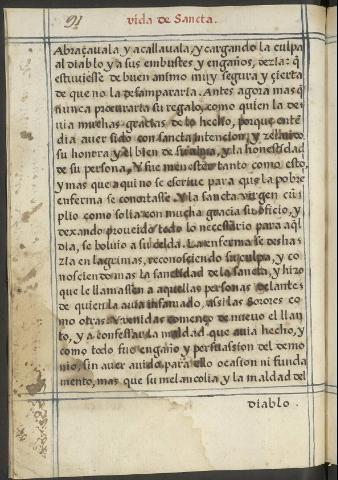 91
vida de Sancta.
Abraçauala, y acallauala, y cargando la culpa
al Diablo y a sus embustes y engaños, dezla: q̃
estuuiesse de buen animo muy segura y çierta
de que no la desampararla. Antes agora mas q̃
nunca procurarta su regalo, como quien la de
uia muchas gracias de lo hecho, porque entẽ
dia auer sido con sancta intencion, y zelando
su honrra y el bien de su alma, y la honestidad
de su persona. Y fue menester tanto como esto,
y mas que aqui no se escriue para que la pobre
enferma se consolasse. Y la sancta virgen cũ
plio como solia con mucha gracia su oficio, y
dexando proueido todo lo necessario para aq̃l
dla, se boluio a su celda. La enferma se desha
zla en lagrimas, reconosciendo su culpa, y co
nosciendo mas la sanctidad de la sancta, y hizo
que le llamassen a aquellas personas delantes
de quien la auia infamado, assi las Sorores co
mo otras. Y venidas començo de nueuo el llan
to, y a confessar la maldad que auia hecho, y
como todo fue engaño y persuassion del demo
nio, sin auer auido para ello ocasion ni funda
mento, mas que su melancolia y la maldad del
Diablo.